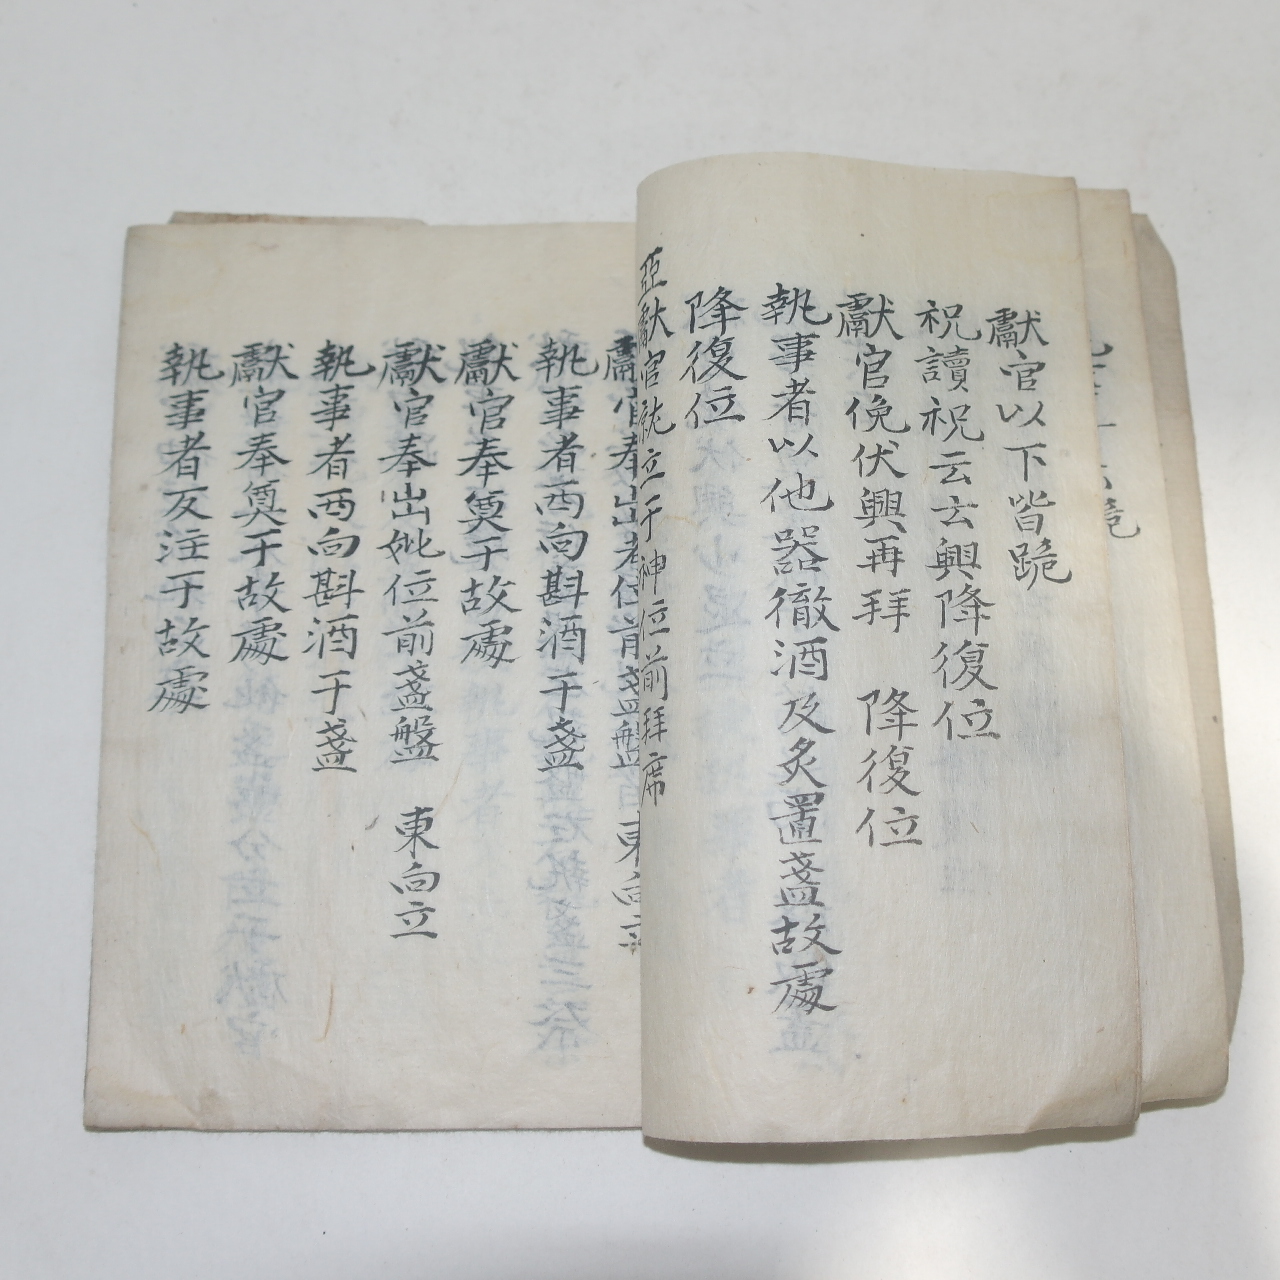 獻官以下皆跪
祝讀祝云云興降復位
獻官俛伏興再拜 降復位
執事者以他器徹酒及炙置盞故處
降復位
亞獻官詣立于神位前拜席
獻官奉出考位前盞盤 東向立
執事者西向斟酒于盞
獻官奉奠于故處
獻官奉出妣位前盞盤 東向立
執事者西向斟酒于盞
獻官奉奠于故處
執事者反注于故處